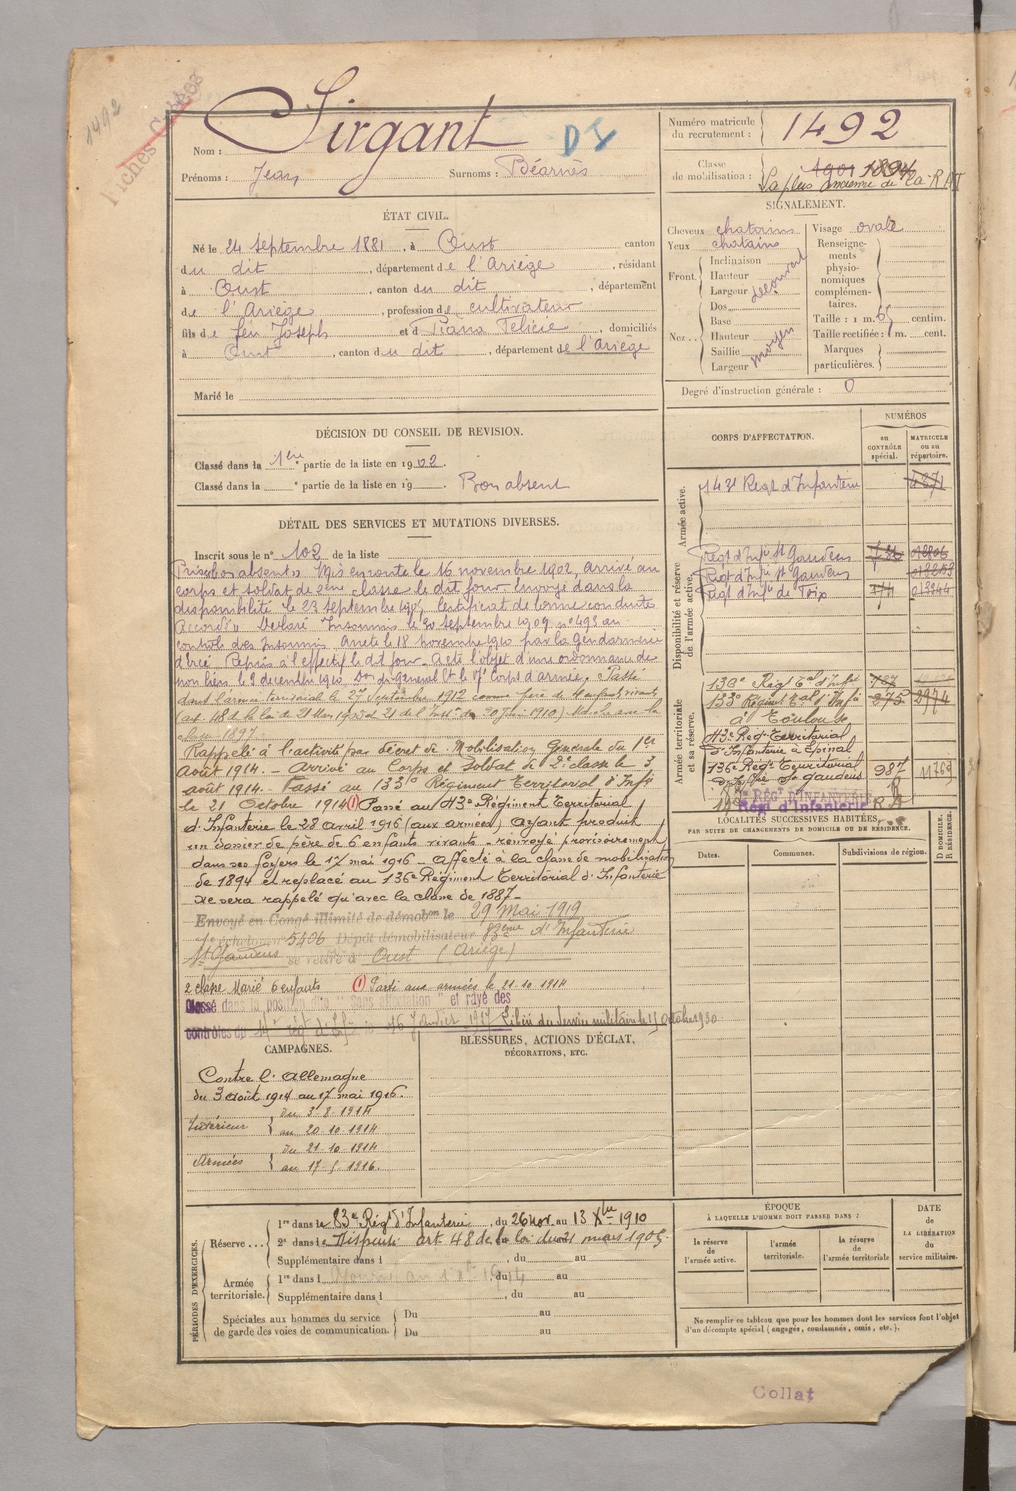 1492
Fiches
Sirgant
D I
Nom :
Prénoms : Jean Surnoms : Béarnès
Numéro matricule du recrutement : 1492
Classe de mobilisation : 1901 1894
La plus ancienne de la R A T
ÉTAT CIVIL.
Né le 24 septembre 1881, à Oust canton
du dit, département de l'Ariège, résidant
à Oust, canton du dit, département
de l'Ariège, profession de cultivateur
fils de feu Joseph et d Piana Félicie, domiciliés
à Oust, canton du dit, département de l'Ariège
Marié le
SIGNALEMENT.
Cheveux chatains Visage ovale
Yeux chatains
Front. Inclinaison
Hauteur
Largeur
découvert
Nez.. Dos
Base
Hauteur
Saillie
Largeur
moyen
Renseignements physionomiques complémentaires.
Taille : 1 m. 65 centim.
Taille rectifiée : 1 m. cent.
Marques particulières.
Degré d'instruction générale : 0
DÉCISION DU CONSEIL DE REVISION.
Classé dans la 1ère partie de la liste en 1902.
Classé dans la e partie de la liste en 19 Bon absent
CORPS D'AFFECTATION.
NUMÉROS
au CONTRÔLE spécial.
MATRICULE ou au répertoire.
Armée active.
143e Régt d'Infanterie
Disponibilité et réserve de l'armée active.
Régt d'Infie St Gaudens
Régt d'Infie St Gaudens
Régt d'Infie de Foix
Armée territoriale et sa réserve.
136e Régt Tal d'Infie 787
133e Régiment Tal d'Infie 275 2974
à Toulouse
43e Régt Territorial
d'Infanterie à Epinal
136e Régt Territorial 987 11769
d'Infie St Gaudens
RÉGt D'INFANTERIE
Régt d'Infanterie R A
DÉTAIL DES SERVICES ET MUTATIONS DIVERSES.
Inscrit sous le n° 102 de la liste
Pris "bon absent". Mis en route le 16 novembre 1902, arrivé au
corps et soldat de 2ème classe le dit jour. Envoyé dans la
disponibilité le 23 septembre 1905, Certificat de bonne conduite
Accordé. Déclaré Insoumis le 20 septembre 1909 n° 493 au
contrôle des Insoumis. Arrêté le 18 novembre 1910 par la Gendarmerie
d'Ercé. Repris à l'effectif le dit jour. A été l'objet d'une ordonnance de
non lieu le 2 décembre 1910 Don du Général Ct le 17e Corps d'armée. Passé
dans l'armée territoriale le 27 septembre 1912 comme père de 4 enfants vivants
(art. 48 de la loi de 21 Mars 1905 et 21 de l'Inston du 20 Juin 1910) Marche avec la
classe 1897.
Rappelé à l'activité par décret de Mobilisation Générale du 1er
Août 1914. - Arrivé au Corps et soldat de 2e classe le 3
août 1914. - Passé au 133e Régiment Territorial d'Infie
le 21 Octobre 1914 (1) Passé au 43e Régiment Territorial
d'Infanterie le 28 avril 1916 (aux armées) Ayant produit
un dossier de père de 6 enfants vivants - renvoyé provisoirement
dans ses foyers le 17 mai 1916 - affecté à la classe de mobilisation
de 1894 et replacé au 136e Régiment Territorial d'Infanterie
ne sera rappelé qu'avec la classe de 1887 -
Envoyé en Congé illimité de démobon le 29 Mai 1919
échelon n° 5406 Dépôt démobilisateur 83ème d'Infanterie
St Gaudens se retire à Oust (Ariège)
2 classe Marié 6 enfants (1) Parti aux armées le 21.10.1914
Classé dans la position dite "Sans affectation" et rayé des
contrôles du régt d'Infie le 16 Janvier 1917 Libéré du Service militaire le 15 Octobre 1930
LOCALITÉS SUCCESSIVES HABITÉES
PAR SUITE DE CHANGEMENTS DE DOMICILE OU DE RÉSIDENCE.
Dates. Communes. Subdivisions de région. D DOMICILE. R RÉSIDENCE.
CAMPAGNES.
Contre l'Allemagne
du 3 Août 1914 au 17 mai 1916.
Intérieur du 3.8.1914
au 20.10.1914
Armées du 21.10.1914
au 17.5.1916.
BLESSURES, ACTIONS D'ÉCLAT,
DÉCORATIONS, ETC.
PÉRIODES D'EXERCICES.
Réserve...
1re dans le 83e Régt d'Infanterie, du 26 nov. au 13 Xbre 1910
2e dans le Dispensé art 48 de la loi du 21 mars 1905.
Supplémentaire dans l , du au
Armée territoriale.
1re dans l du au
Supplémentaire dans l , du au
Spéciales aux hommes du service de garde des voies de communication.
Du au
Du au
ÉPOQUE
À LAQUELLE L'HOMME DOIT PASSER DANS :
la réserve de l'armée active.
l'armée territoriale.
la réserve de l'armée territoriale
DATE de LA LIBÉRATION du service militaire.
Ne remplir ce tableau que pour les hommes dont les services font l'objet
d'un décompte spécial (engagés, condamnés, omis, etc.).
Collat